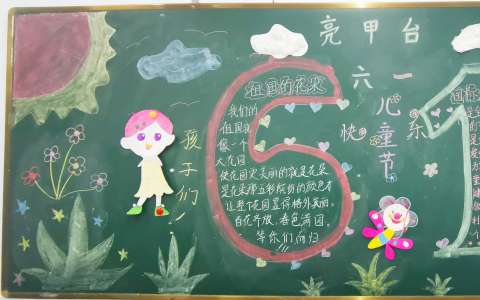 亮甲台
六一
儿童节
快乐
孩子们
6
1
祖国的花朵
我们的
像一个
大花园
使花园更美丽的就是花朵
是花朵那五彩缤纷的颜色才
让整个花园显得格外美丽。
百花齐放,春色满园。
等你们回归